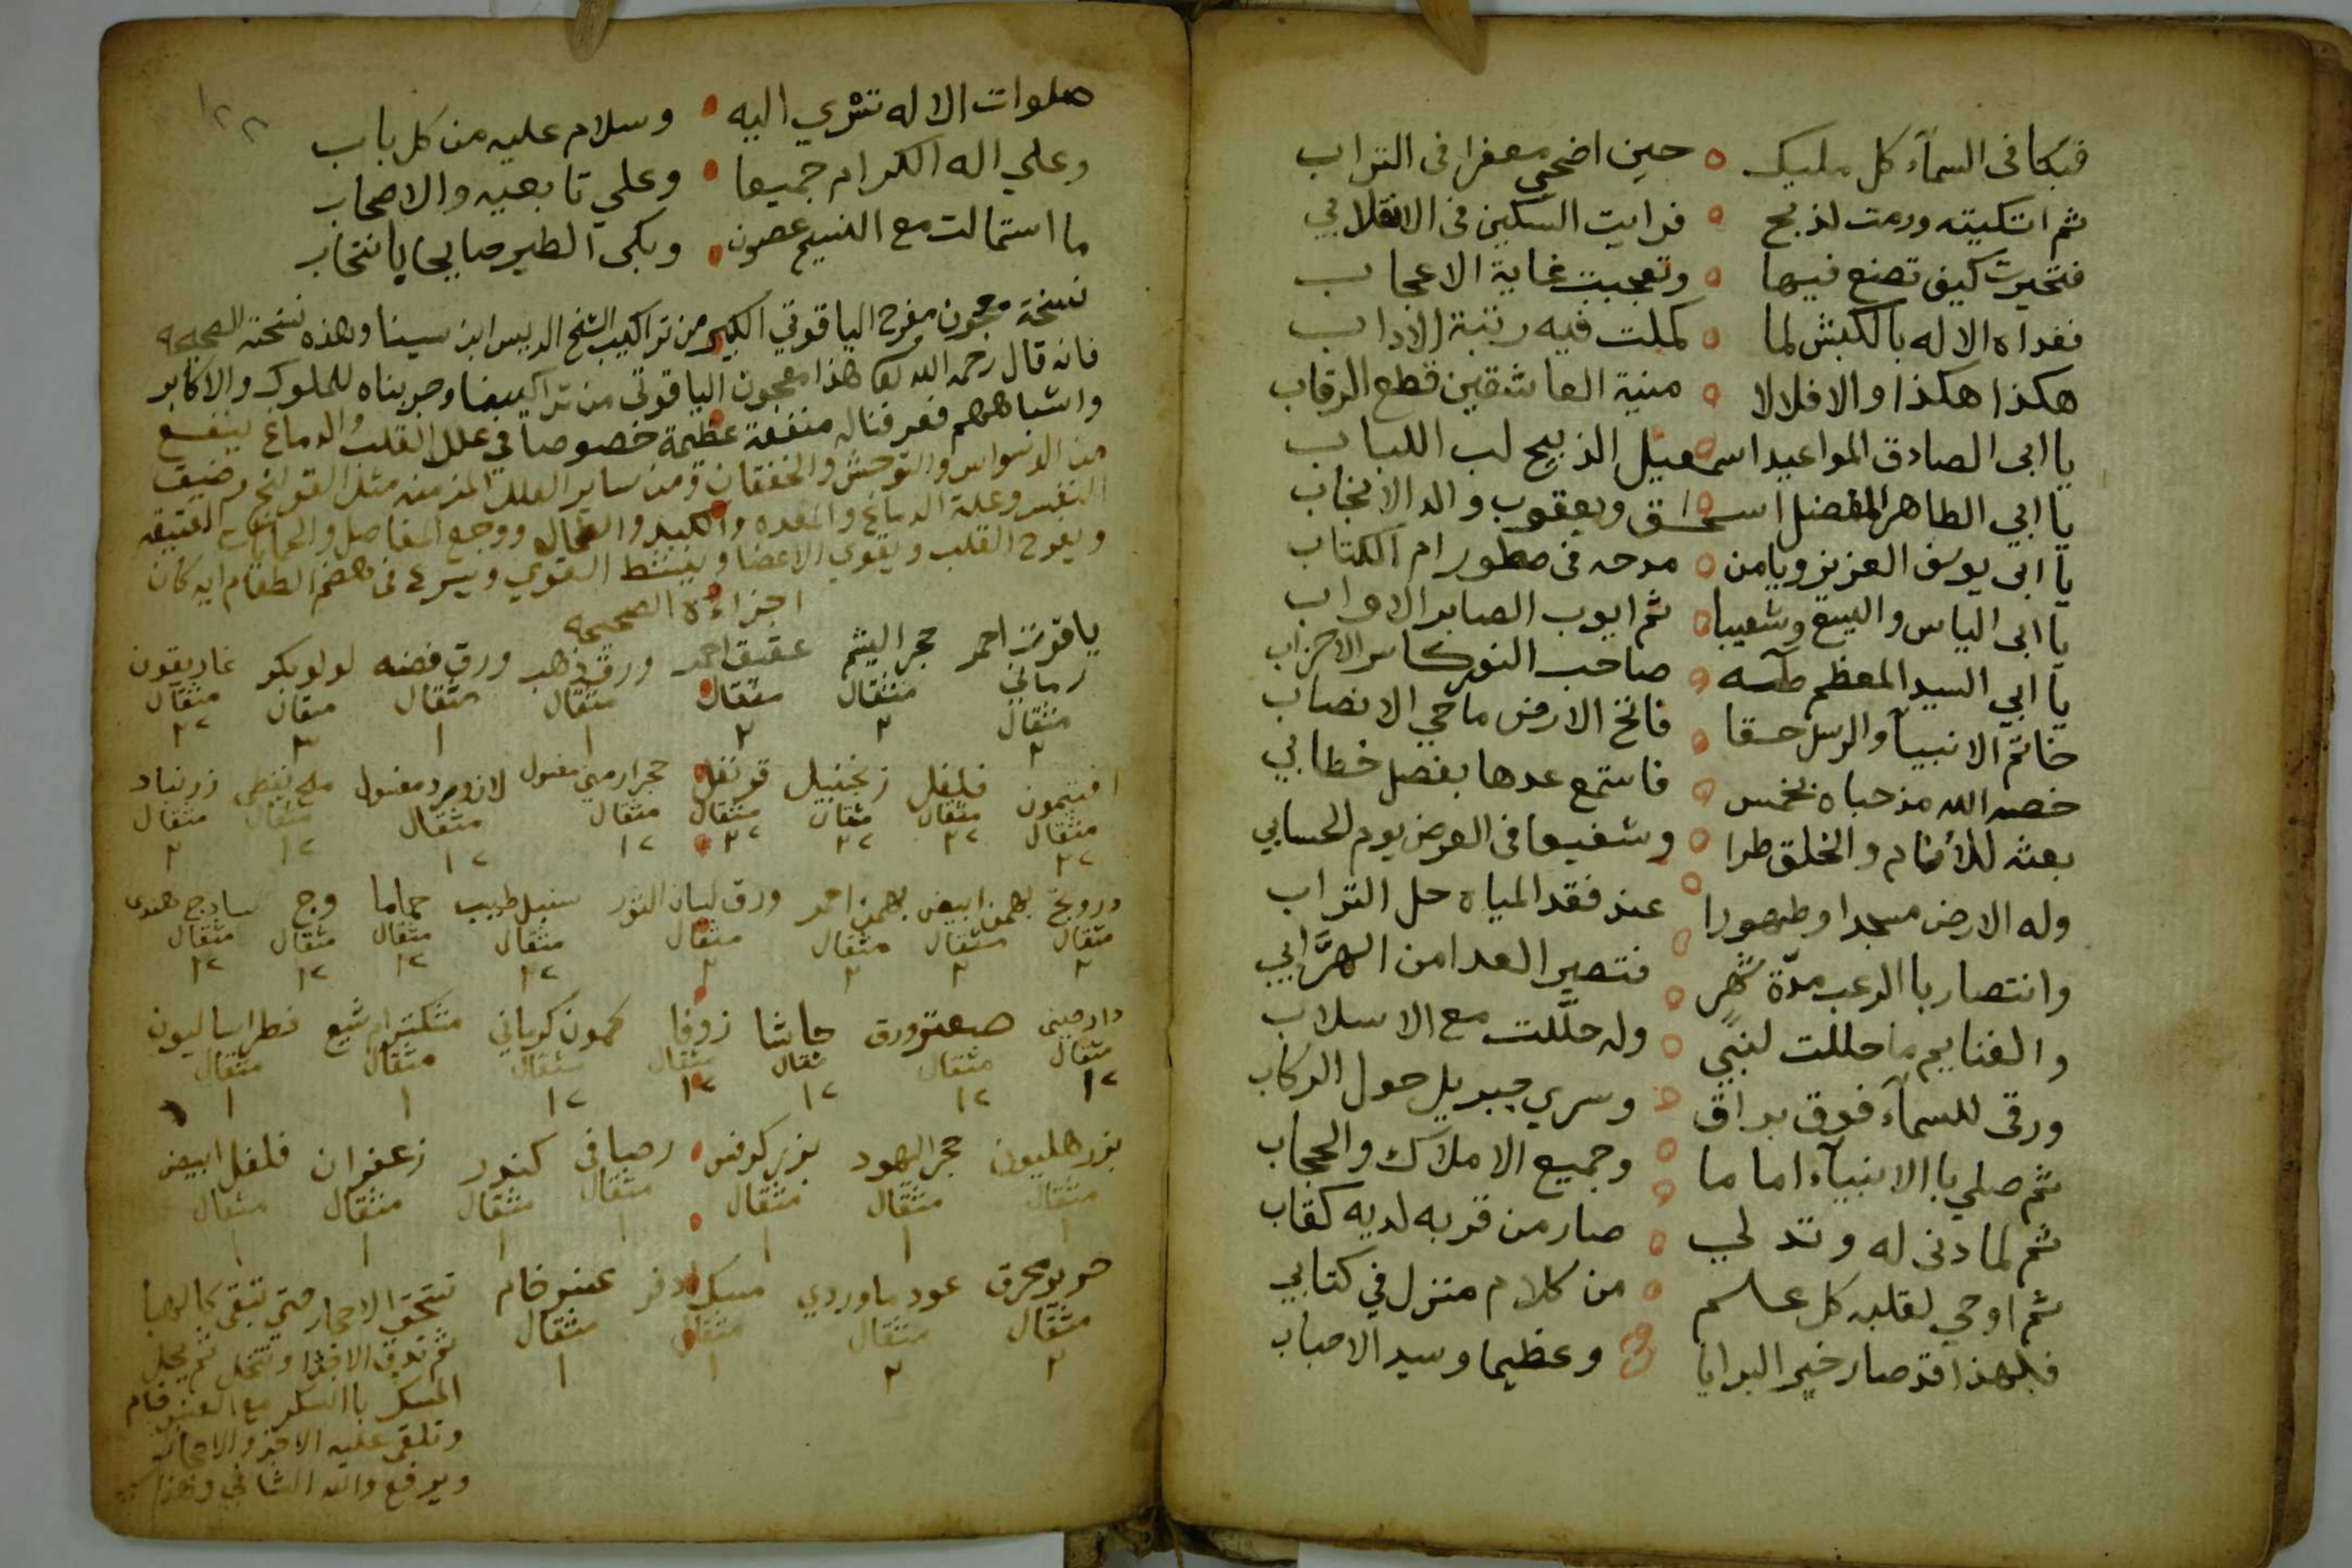 فبكا فى السمآء كل مليك حين اضحي معفرا فى التراب
ثم اتكيته ورمت لذبح فرايت السكين فى الانقلابي
فتحيرت كيف تصنع فيها وتعجبت غاية الاعجاب
ففداه الاله بالكبش لما كملت فيه رتبة الاداب
هكذا هكذا والا فلالا منية العاشقين قطع الرقاب
يا ابى الصادق المواعيد اسمعيل الذبيح لب اللباب
يا ابي الطاهر المفضل اسحق ويعقوب والد الانجاب
يا ابى يوسف العزيز ويا من مدحه فى سطور ام الكتاب
يا ابى الياس واليسع وشعيبا ثم ايوب الصابر الاواب
يا ابي السيد المعظم طه صاحب النور كاسر الاحزاب
خاتم الانبيآ والرسل حقا فاتح الارض ماحي الانصاب
خصه الله مذ حباه بخمس فاستمع عدها بفصل خطابي
بعثه للأنام والخلق طرا وشفيعا فى العرض يوم الحسابي
وله الارض مسجدا وطهورا عند فقد المياه حل التراب
وانتصار با الرعب مدّة شهر فتصير العدا من الهرَّابي
والغنايم ما حللت لنبي وله حلَّلت مع الاسلاب
ورقى للسمآء فوق براق وسري جبريل حول الركاب
ثم صلي با الانبيآء اماما وجميع الاملاك والحجاب
ثم لما دنى له وتدلي صار من قربه لديه كقاب
ثم اوحي لقلبه كل علم من كلام منزل في كتابي
فلهذا قد صار خير البرايا وعظيما وسيد الاحباب
١٢٢
صلوات الاله تتري اليه وسلام عليه من كل باب
وعلي اله الكرام جميعا وعلي تابعيه والاصحاب
ما استمالت مع النسيم غصون وبكى الطير صايحا بانتحاب
نسخة معجون مفرح الياقوتي الكبير من تراكيب الشيخ الريس ابن سينا وهذه نسخته الصحيحة
فانه قال رحمه الله تعا هذا معجون الياقوتى من تراكيبنا وجربناه للملوك والاكابر
واشباههم فعرفنا له منفعة عظيمة خصوصا في علل القلب والدماغ ينفع
من الوسواس والتوحش والخفقان ومن ساير العلل المزمنه مثل القولنج وضيق
النفس وعلة الدماغ والمعده والكبد والطحال ووجع المفاصل والحمايات العتيقه
ويفرح القلب ويقوي الاعضا وينشط القوي ويسرع فى هضم الطعام
اجزاءوه الصحيحة
ياقوت احمر رماني حجر اليشم عقيق احمر ورق ذهب ورق فضه لولو بكر غاريقون
مثقال مثقال مثقال مثقال مثقال مثقال مثقال
٢ ٢ ٢ ١ ١ ٢ ٢
افتيمون فلفل زنجبيل قرنفل حجر ارمني مغسول لازورد مغسول ملح نفطى زرنباد
مثقال مثقال مثقال مثقال مثقال مثقال مثقال مثقال
درونج بهمن ابيض بهمن احمر ورق لسان الثور سنبل طيب حماما وج سادج هندى
مثقال مثقال مثقال مثقال مثقال مثقال مثقال مثقال
دارصينى صعتر ورق حاشا زوفا كمون كرماني مشكترامشيع فطراساليون
مثقال مثقال مثقال مثقال مثقال مثقال مثقال
بزر هليون حجر اليهود بزر كرفس كندر زعفران فلفل ابيض
مثقال مثقال مثقال مثقال مثقال مثقال مثقال
١ ١ ١ ١ ١ ١ ١
حرير محرق عود ماوردي مسك اذفر عنبر خام
مثقال مثقال مثقال مثقال
٢ ٢ ١ ١
تسحق الاحجار حتي تبقى كالهبا
ثم تدق الاجزا وتنخل ثم يحل
المسك با السكر مع العنبر خام
وتلقى عليه الاجزا والاحجار
ويرفع والله الشافي